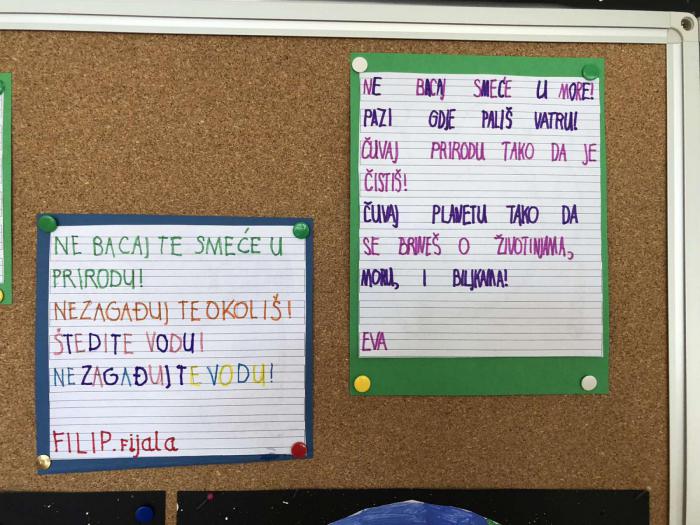 NE BACAJ TE SMEĆE U
PRIRODU!
NEZAGAĐUJ TE OKOLIŠ!
ŠTEDITE VODU!
NE ZAGAĐUJ TE VODU!
FILIP.rijala
NE BACAJ SMEĆE U MORE!
PAZI GDJE PALIŠ VATRU!
ČUVAJ PRIRODU TAKO DA JE
ČISTIŠ!
ČUVAJ PLANETU TAKO DA
SE BRINEŠ O ŽIVOTINJAMA,
MORU, I BILJKAMA!
EVA